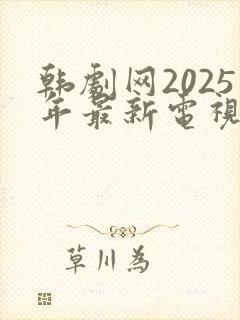 韩劇网2025
年最新電視
草川為